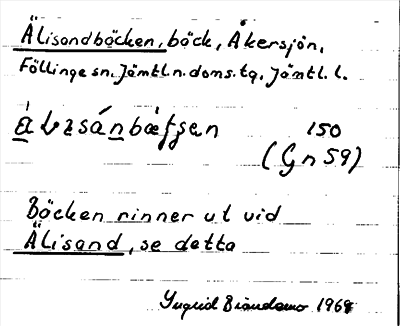 Älisandbäcken, bäck, Åkersjön,
Föllinge sn. Jämtl. n. doms. tg. Jämtl. l.
150
(Gn 59)
Bäcken rinner ut vid
Älisand, se detta
Ingrid 1968